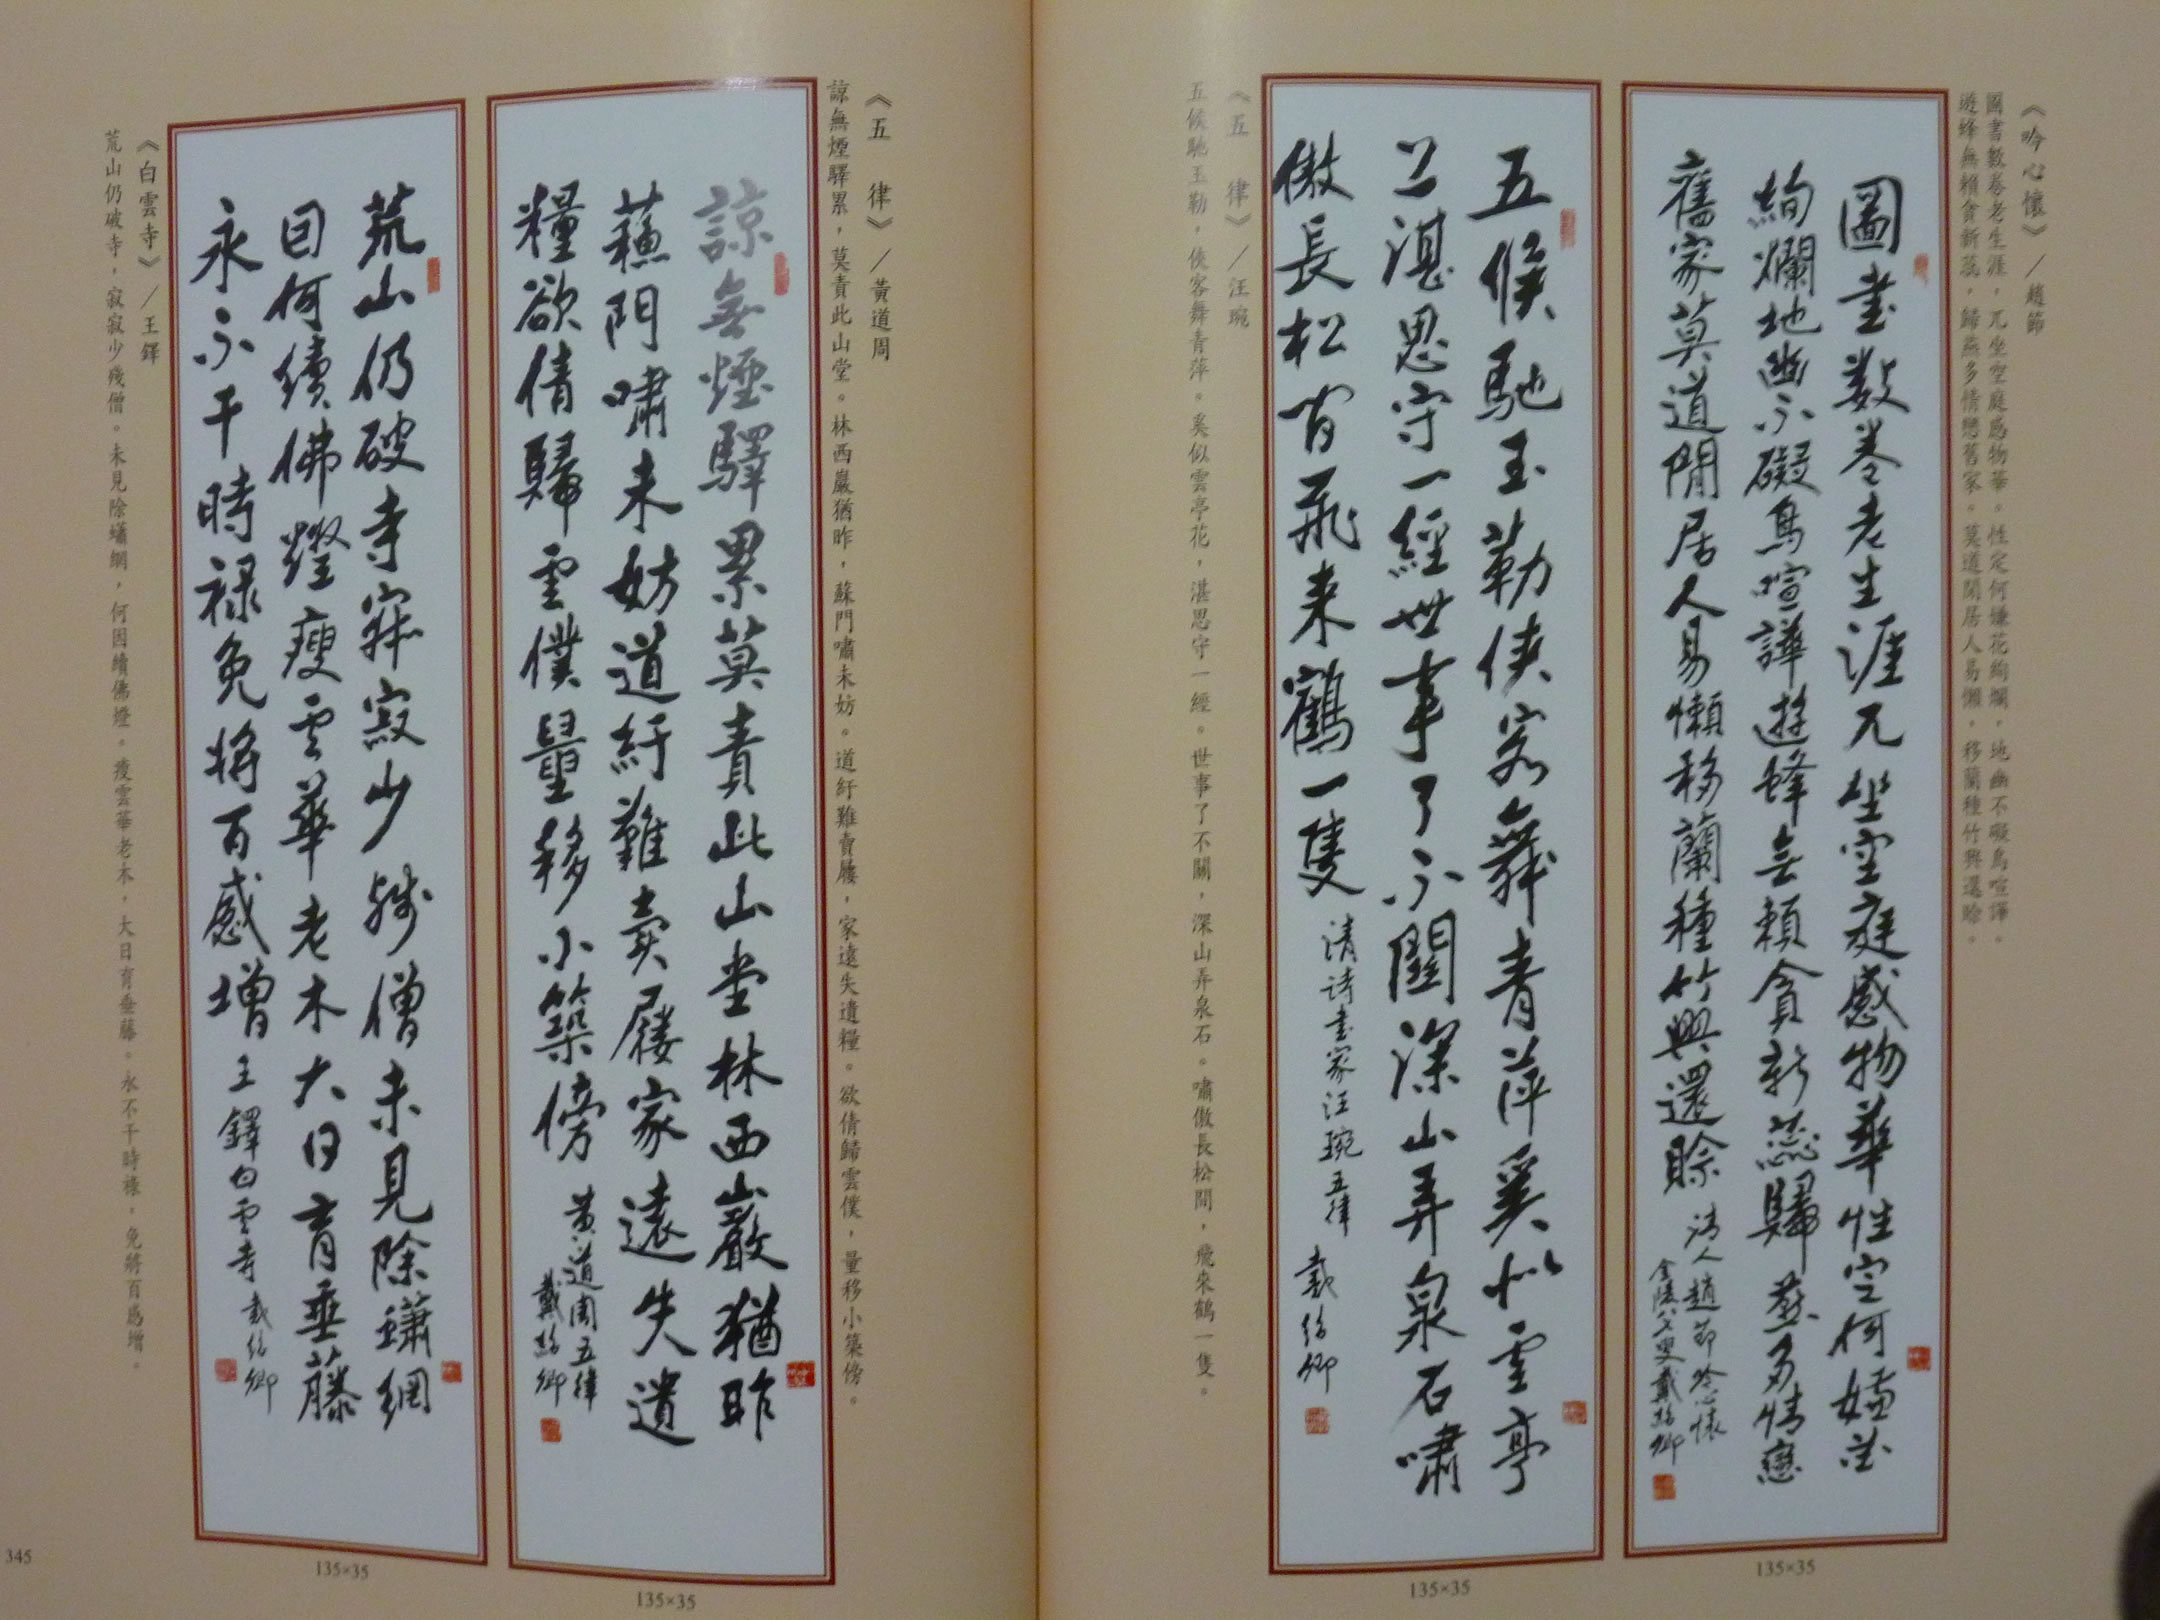 《吟心懷》／趙節
圖書數卷老生涯，兀坐空庭感物華。性定何嫌花絢爛，地幽不礙鳥喧譁。
遊蜂無賴貪新蕊，歸燕多情戀舊家。莫道閒居人易懶，移蘭種竹興還賒。
圖書数卷老生涯兀坐空庭感物華性定何嫌花
絢爛地幽不礙鳥喧譁遊蜂無賴貪新蕊歸燕多情戀
舊家莫道閒居人易懶移蘭種竹興還賒
清人趙節吟心懷
金陵八父叟戴紹卿
135×35
《五 律》／汪琬
五候馳玉勒，俠客舞青萍。奚似雲亭花，湛思守一經。世事了不關，深山弄泉石。嘯傲長松間，飛來鶴一隻。
五候馳玉勒俠客舞青萍奚似雲亭
上湛思守一經世事了不關深山弄泉石嘯
傲長松間飛来鶴一隻
清诗書家汪琬五律
戴紹卿
135×35
《五 律》／黃道周
諒無煙驛累，莫責此山堂。林西巖猶昨，蘇門嘯未妨。道紆難賣屨，家遠失遺糧。欲倩歸雲僕，量移小築傍。
諒無煙驛累莫責此山堂林西巖猶昨
蘇門嘯未妨道紆難賣屨家遠失遺
糧欲倩歸雲僕量移小築傍
黃道周五律
戴紹卿
135×35
《白雲寺》／王鐸
荒山仍破寺，寂寂少殘僧。未見除蟏網，何因續佛燈。瘦雲華老木，大日育垂藤。永不干時祿，免將百感增。
荒山仍破寺寂寂少殘僧未見除蟏網
因何續佛燈瘦雲華老木大日育垂藤
永不干時禄免将百感增
王鐸白雲寺
戴紹卿
135×35
345